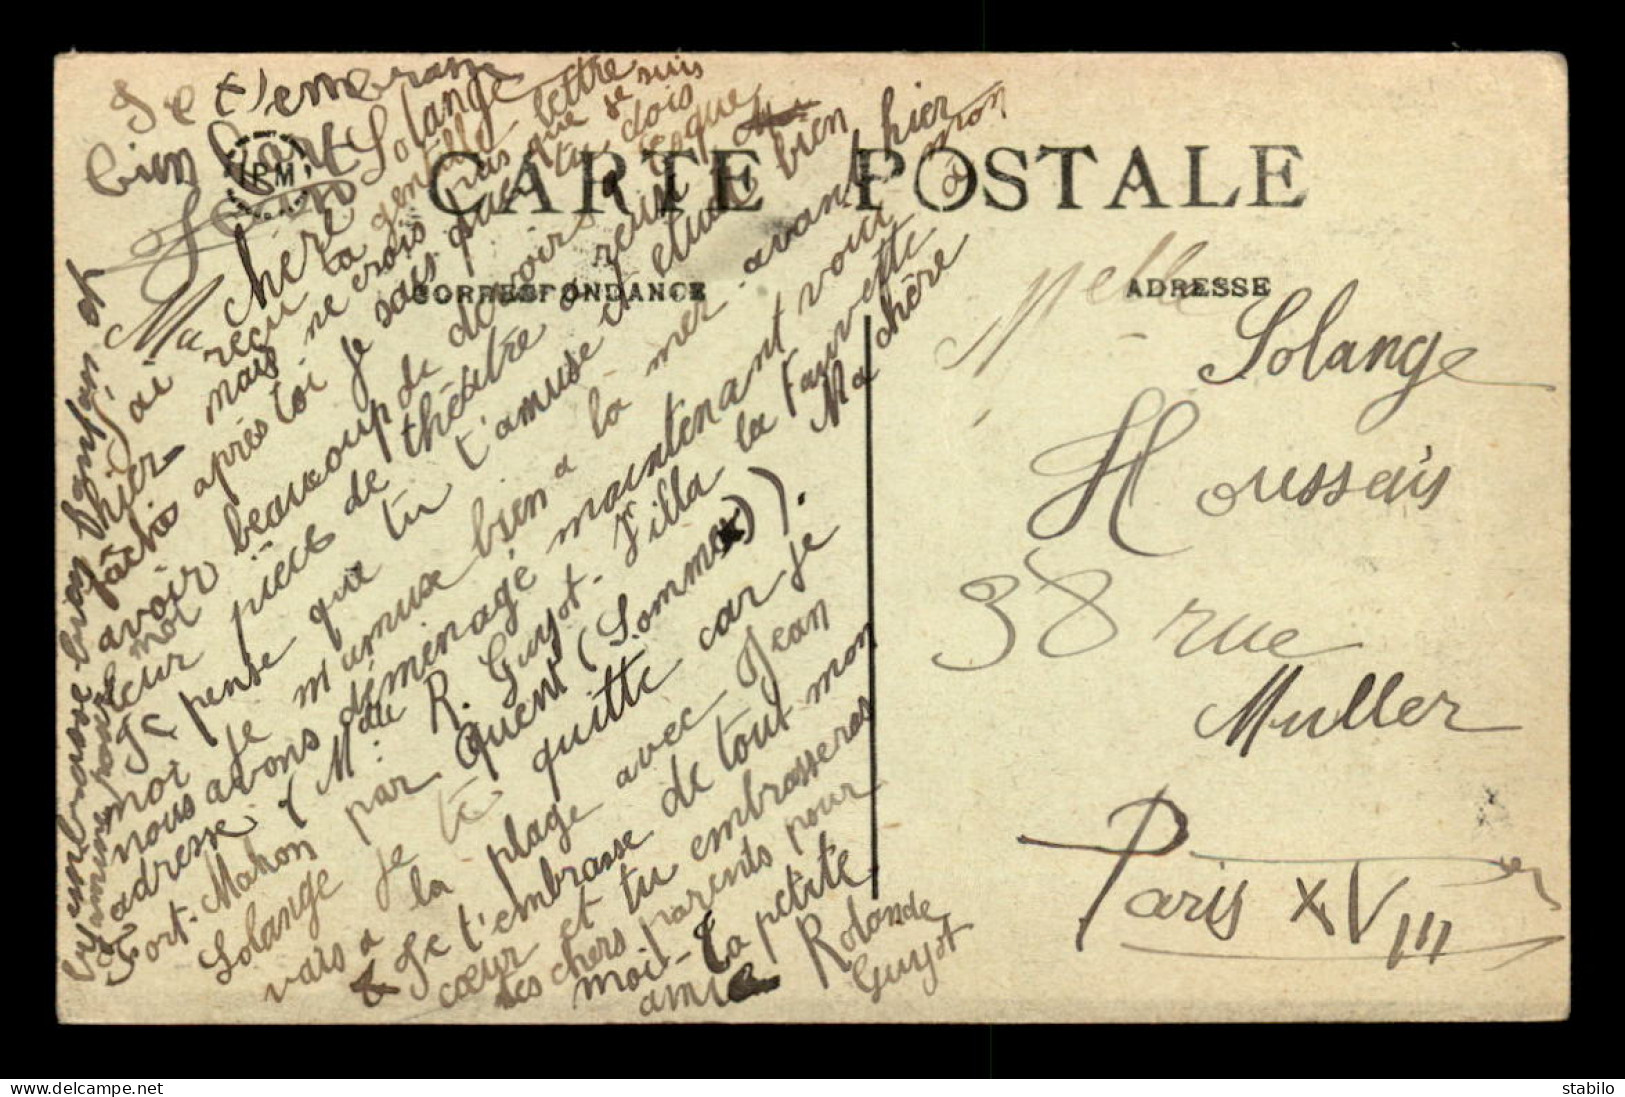 CARTE POSTALE
CORRESPONDANCE
ADRESSE
IPM
Je t'embrasse
bien fort
Ma chère Solange
J'ai reçu ta gentille lettre
hier mais ne crois pas que je suis
fâchée après toi je sais que tu dois
avoir beaucoup de devoirs
leur pièce de théâtre a réussi
Je pense que tu t'amuse et étudie bien
moi je m'amuse bien a la mer avant hier
nous avons déménagé maintenant voici mon
adresse (Mdlle R. Guyot. Villa la Fauvette
Fort-Mahon par Quent (Somme)). Ma chère
Solange je te quitte car je
vais a la plage avec Jean
Je t'embrasse de tout mon
cœur et tu embrasseras
tes chers parents pour
moi - La petite
amie Rolande
Guyot
embrasse bien
Melle
Solange
Houssais
38 rue
Muller
Paris XVIII
delcampe.net
stabilo